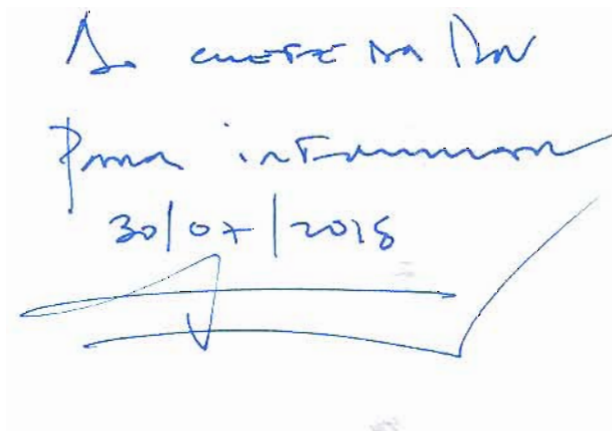 Ao CHEFE DA
Para informar
30/07/2018